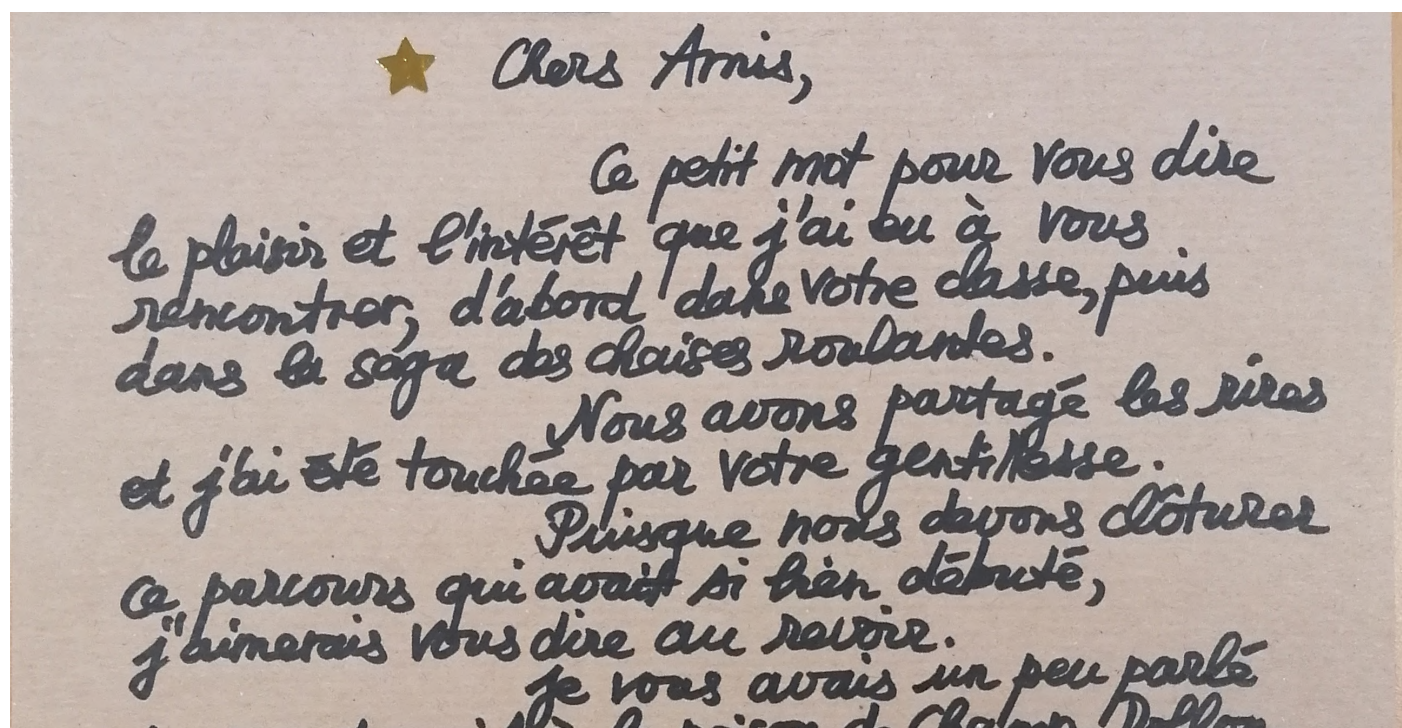 Chers Amis,
Ce petit mot pour vous dire
le plaisir et l'intérêt que j'ai eu à vous
rencontrer, d'abord dans votre classe, puis
dans la saga des chaises roulantes.
Nous avons partagé les rires
et j'ai été touchée par votre gentillesse.
Puisque nous devons clôturer
ce parcours qui avait si bien débuté,
j'aimerais vous dire au revoir.
Je vous avais un peu parlé